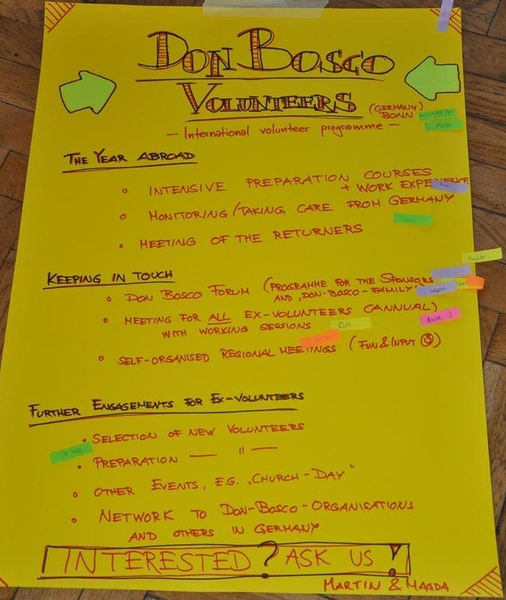 DON BOSCO
VOLUNTEERS
(GERMANY)
BONN
— International volunteer programme —
THE YEAR ABROAD
○ INTENSIVE PREPARATION COURSES
+ WORK EXPERIENCE
○ MONITORING/TAKING CARE FROM GERMANY
○ MEETING OF THE RETURNERS
KEEPING IN TOUCH
○ DON BOSCO FORUM (PROGRAMME FOR THE SPONSORS
AND „DON-BOSCO-FAMILY"
○ MEETING FOR ALL EX-VOLUNTEERS (ANNUAL)
WITH WORKING SESSIONS
○ SELF-ORGANISED REGIONAL MEETINGS (FUN & INPUT ☺)
FURTHER ENGAGEMENTS FOR EX-VOLUNTEERS
• SELECTION OF NEW VOLUNTEERS
• PREPARATION — " —
○ OTHER EVENTS, E.G. „CHURCH-DAY"
○ NETWORK TO DON-BOSCO-ORGANISATIONS
AND OTHERS IN GERMANY
INTERESTED? ASK US!
MARTIN & MAGDA